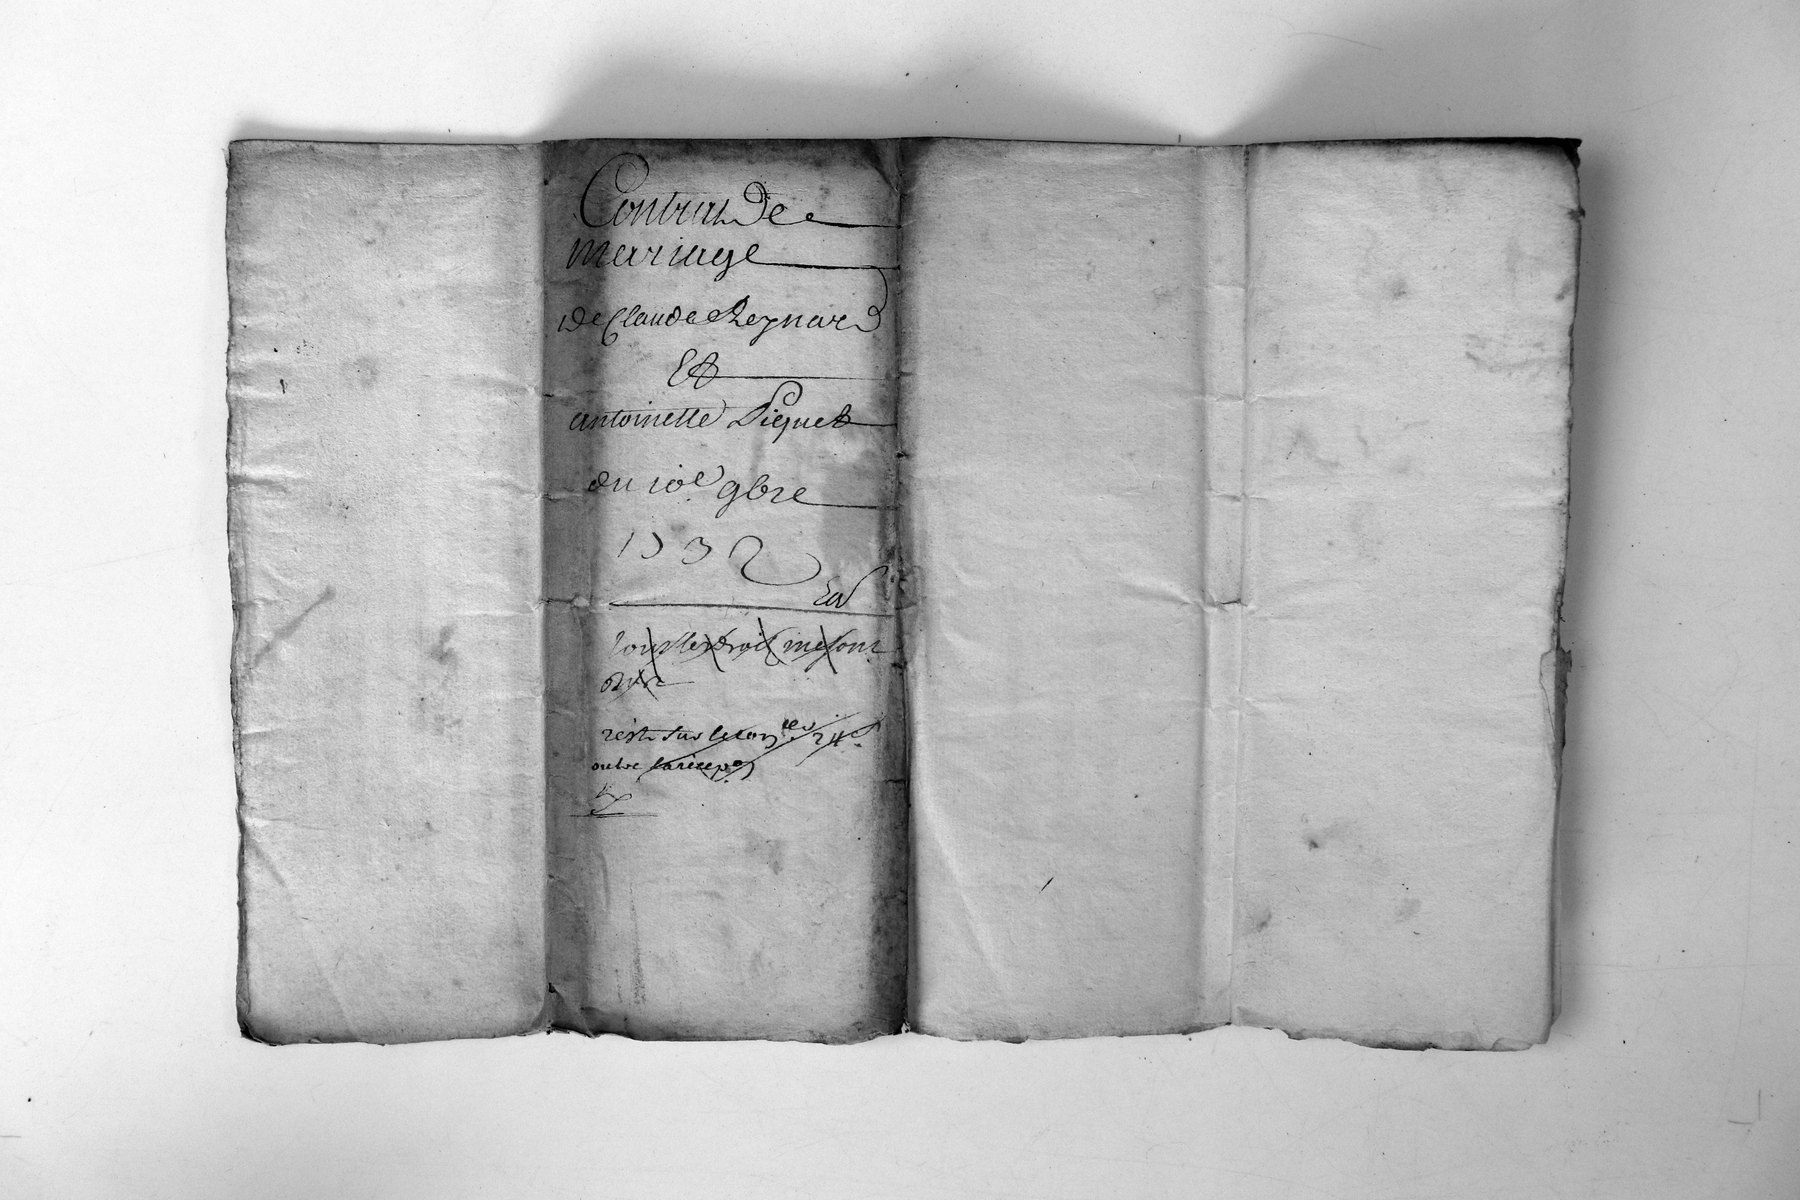 Contrat De
mariage
De Claude Reynard
Et
antoinette Piquet
du 10e 9bre
1732
tous les droits me sont
reste sur le con 24s
outre